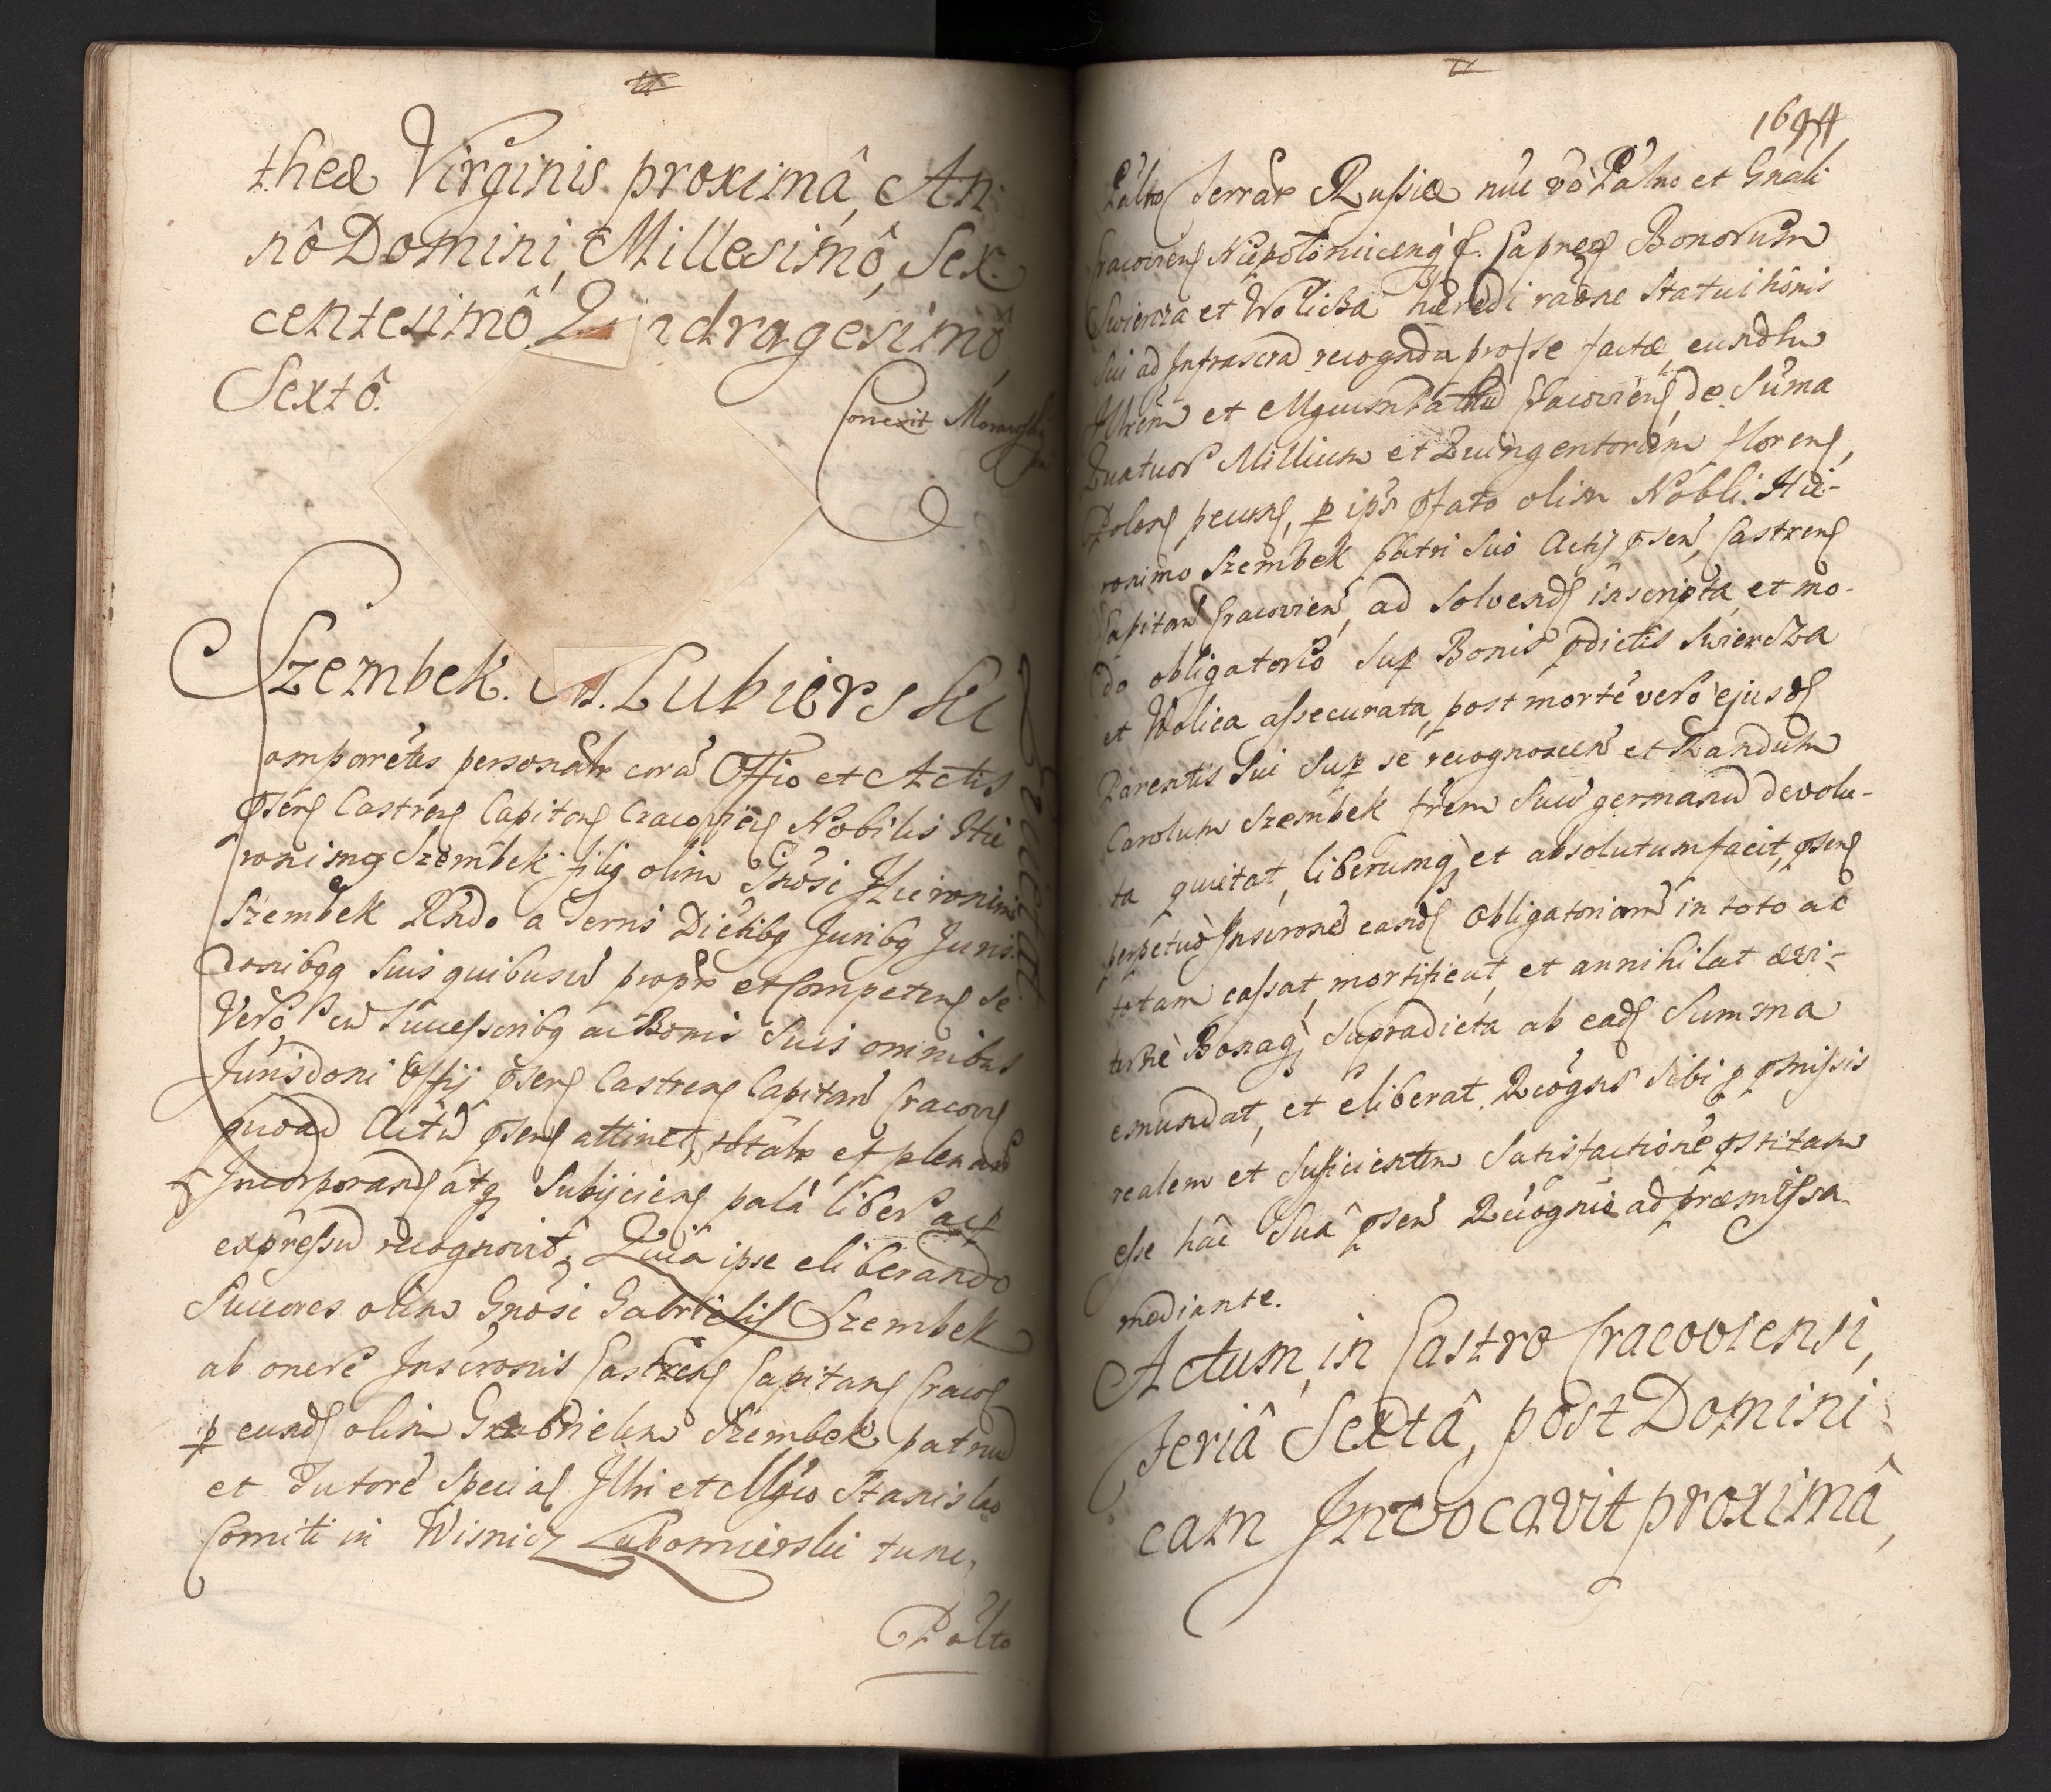 theæ Virginis proximâ, An
nô Domini, Millesimô, Sex
centesimô, Quadragesimô
Sextô.
Correxit Morawski
Szembek. A. Lubierski
quietat
Comparens personalr corā Offio et Actis
pñtbus Castren Capitan Cracovien Nobilis Hie
ronimg Szembek filig olim Gnōsi Hieronimi
Szembek Rndo a Terris Districtibg Juribg Juris
donibgq suis quibusvis propr et competen se
Vero cū Successoribg ac Bonis suis omnibus
Jurisdoni Offij pñtis Castren Capitan Cracovien
quoad Actū pñtem attinet, totalr et plenarie
Incorporand atq Subijcien palā liberac
expressū recognovit. Quia ipse eliberando
Succres olim Gnōsi Gabrielis Szembek
ab onere Inscronis Castren Capitan Cracov
p eund olim Gabrielem Szembek patruū
et Tutorē Special Illri et Mgco Stanislao
Comiti in Wisnicz Lubomierski tunc,
Palto
1644
Palto Terrar Russiæ nūc vō Palno et Gnāli
Cracovien Niepolomicenq. Capneo Bonorum
Swierza et Wolicza hæredi raōne Statuihonis
sui ad Infrascra recognda pro se factæ eundem
Illrem et Mgcum Palnū Cracovien, de Sūma
Quatuor Millium et Quingentorum floren,
Polon pecun, p ipm pfato olim Nobli. Hie-
ronimo Szembek patri suo Actis pñtbus Castren
Capitan Cracovien, ad solvend inscripta, et mo-
do obligatorio sup Bonis pdictis Swierza
et Wolica assecurata, post mortē vero ejusd
Parentis sui sup se recognoscen et Randum
Carolum Szembek frem suū germanū devolu-
ta quietat, liberumq et absolutum facit, pñtis
perpetuo Inscronē eand Obligatoriam in toto ac
totam cassat, mortificat, et annihilat ævi-
ternè Bonaq supradicta ab ead Summa
emundat, et eliberat. Recogns sibi p pmissis
realem et sufficientem Satisfactionē pstitam
esse hâc Suâ pñti Recogne ad præmissa
mediante.
Actum, in Castro Cracoviensi,
Feriâ Sextâ, post Domini
cam Invocavit proximâ,